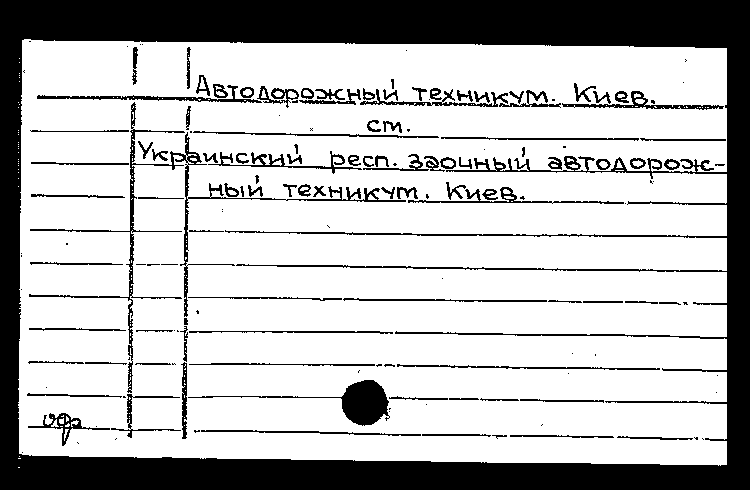 Автодорожный техникум. Киев.
ст.
Украинский респ. заочный автодорож-
ный техникум. Киев.